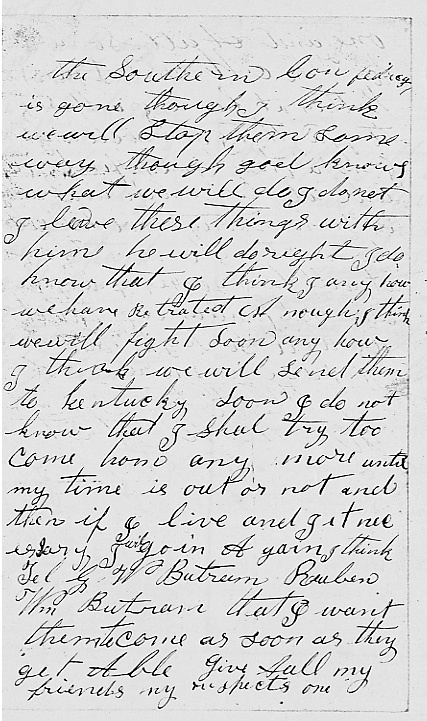 the Southern Con fedracy
is gone though I think
we will stop them some
way though god knows
what we will do I do not
I leave these things with
him he will do right I do
know that I think I any how
we have Retrated A nough I think
we will fight soon any how
I think we will send them
to kentucky soon I do not
know that I shal try too
come hom any more until
my time is out or not and
then if I live and git nec
essary I will go in A gain I think
Tel G W Butram Reuben
Wm Butram that I want
them to come as soon as they
get Able give all my
friends my respects one